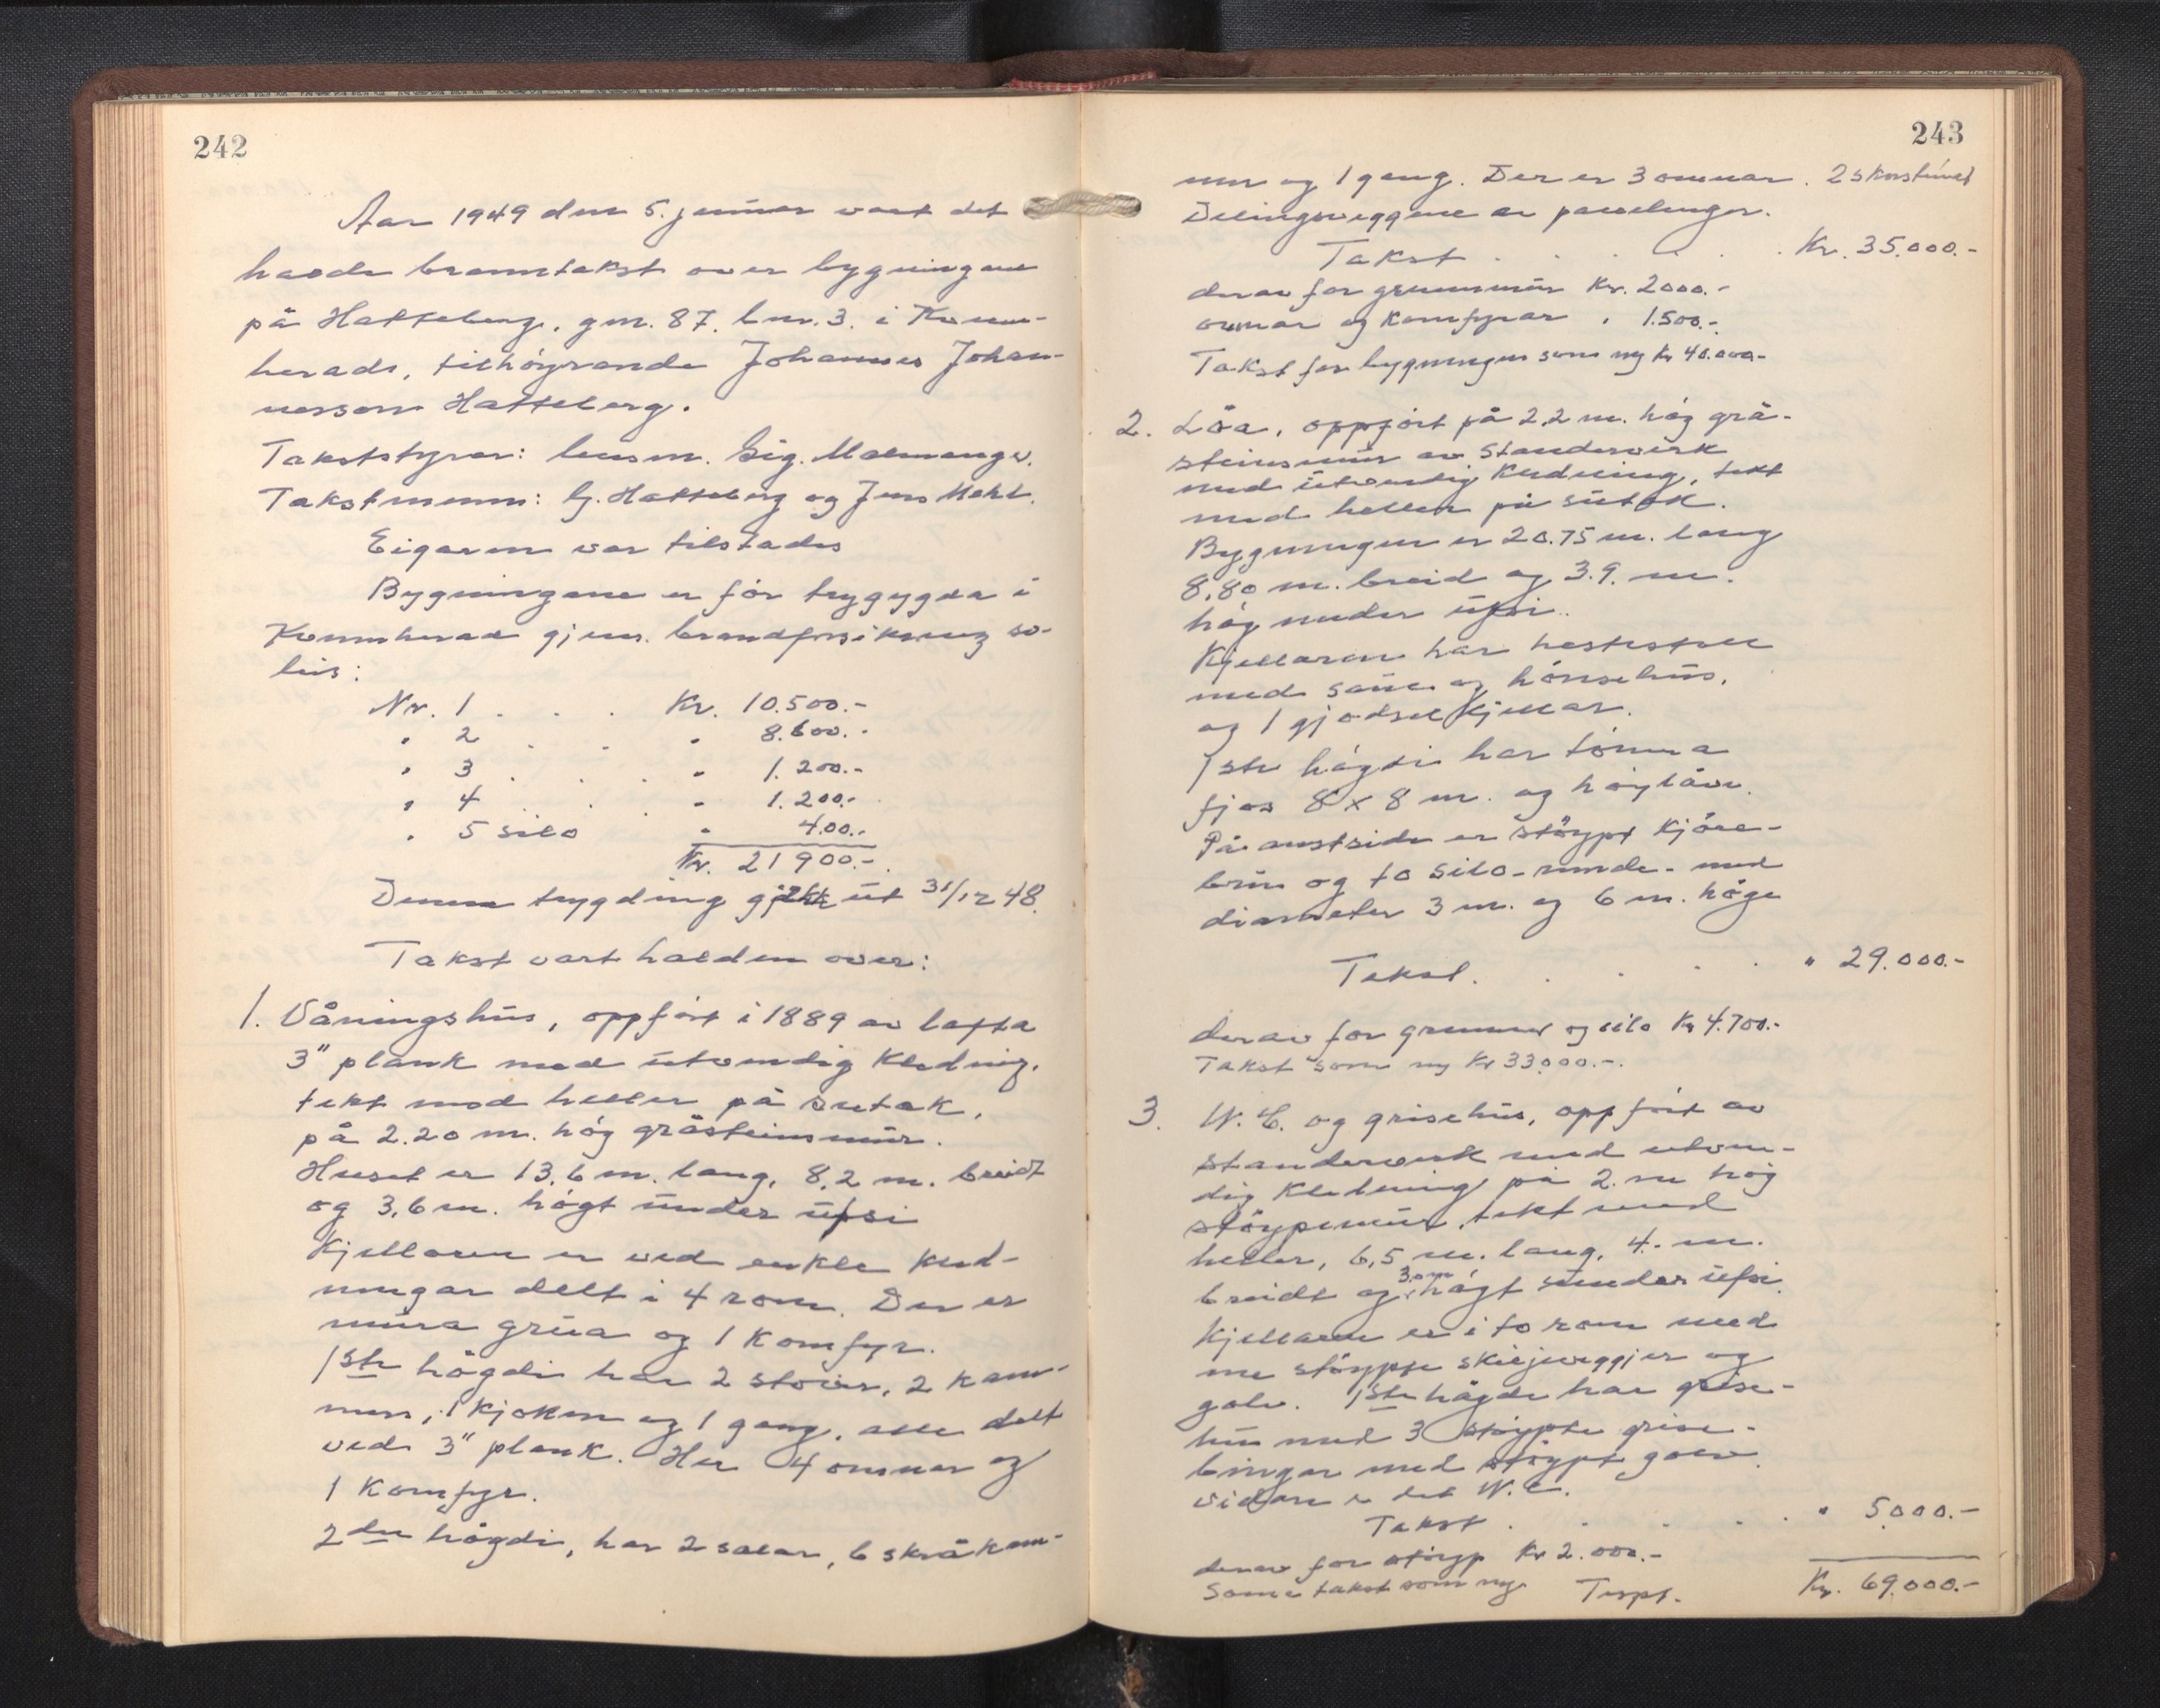 242
Aar 1949 den 5. januar vart det
halde branntakst over bygningane
på Hatteberg, gnr. 87, bnr. 3. i Kvinn-
herad, tilhöyrande Johannes Johan-
nesson Hatteberg.
Takststyrar: lensm. Sig. Malmanger.
Takstmenn: G. Hatteberg og Jens Mehl.
Eigaren var tilstades
Bygningane er för trygygda i
Kvinnherad gjens. brandforsikring so-
leis:
Nr. 1 . . . Kr. 10.500.-
" 2 . . " 8.600.-
" 3 . . . " 1.200.-
" 4 . . . " 1.200.-
" 5 silo " 400.-
Kr. 21900.-
Denne trygding gjekk ut 31/12 48.
Takst vart halden over:
1. Våningshus, oppfört i 1889 av lafta
3" plank med utvendig kledning,
tekt med heller på sutak,
på 2.20 m. hög gråsteinsmur.
Huset er 13,6 m. lang, 8,2 m. breidt
og 3,6 m. högt under ufsi
Kjellaren er ved enkle kled-
ningar delt i 4 rom. Der er
mura grua og 1 komfyr.
1ste högdi har 2 stover, 2 kam-
mers, 1 kjöken og 1 gang, alle delt
ved 3" plank. Her 4 omnar og
1 komfyr.
2dre högdi, har 2 salar, 6 skråkam-
243
mer og 1 gang. Der er 3 omnar. 2 skorsteinar
Delingsveggene er panelinger.
Takst . . . . . Kr. 35.000.-
derav for grunnmur Kr. 2000.-
omnar og komfyrar " 1.500.-
Takst for bygningen som ny Kr 40.000.-
2. Löa, oppfört på 2,2 m. hög grå-
steinsmur av standerverk
med utvendig kledning, tekt
med heller på sutak.
Bygningen er 20.75 m. lang
8,80 m. breid og 3.9. m.
hög under ufsi.
Kjellaren har hestestall
med saue og hönsehus,
og 1 gjödselkjellar.
1ste högdi har tömra
fjos 8 x 8 m. og höylåve.
På austsida er stöypt kjöre-
bru og to silo-runde- med
diameter 3 m. og 6 m. höge
Takst. . . . . " 29.000.-
derav for grunnmur og silo Kr 4.700.-
Takst som ny Kr 33.000.-.
3. W. C. og grisehus, oppfört av
standerverk med utven-
dig kledning på 2. m hög
stöypemur, tekt med
heller, 6,5 m. lang, 4.- m.
breidt og 3.0 m högt under ufsi.
Kjellaren er i to rom med
me stöypte skiljeveggjer og
golv. 1ste högde har grise-
hus med 3 stöypte grise-
bingar med stöypt golv.
vidare er det W. C.
Takst . . . . . " 5.000.-
derav for stöyp Kr 2.000.-
Same takst som ny. Transp. Kr. 69.000.-